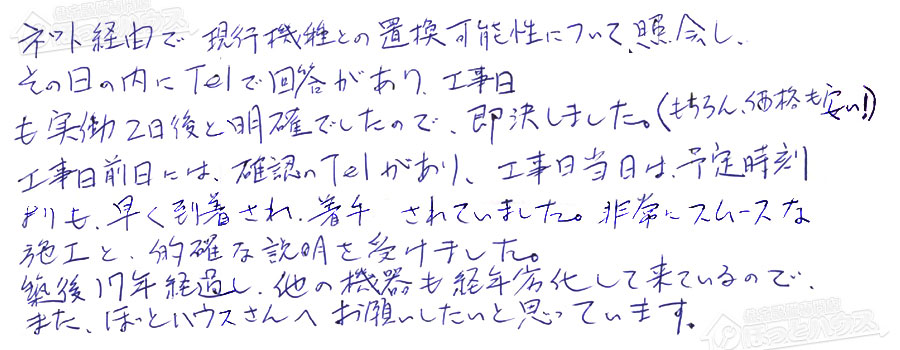 ネット経由で現行機種との置換可能性について、照会し、
その日の内にTelで回答があり、工事日
も実働2日後と明確でしたので、即決しました。(もちろん、価格も安い!)
工事日前日には、確認のTelがあり、工事日当日は、予定時刻
よりも、早く到着され、着手されていました。非常にスムースな
施工と、的確な説明を受けました。
築後17年経過し、他の機器も経年劣化して来ているので、
また、ほっとハウスさんへお願いしたいと思っています。